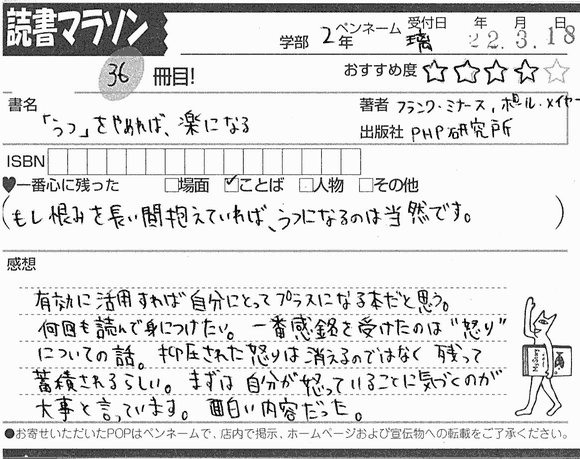 読書マラソン
学部 2年 ペンネーム 璃 受付日 22年 3月 18日
36 冊目! おすすめ度 ★★★★☆
書名 著者 フランク・ミナース, ポール・メイヤー
「うつ」をやめれば、楽になる
出版社 PHP研究所
ISBN
♥一番心に残った □場面 ☑ことば □人物 □その他
(もし恨みを長い間抱えていれば、うつになるのは当然です。)
感想
有効に活用すれば自分にとってプラスになる本だと思う。
何回も読んで身につけたい。一番感銘を受けたのは"怒り"
についての話。抑圧された怒りは消えるのではなく残って
蓄積されるらしい。まずは自分が怒っていることに気づくのが
大事と言っています。面白い内容だった。
●お寄せいただいたPOPはペンネームで、店内で掲示、ホームページおよび宣伝物への転載をご了承ください。